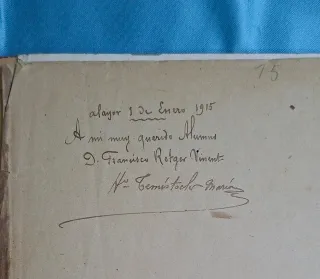 75
alayor 1 de Enero 1915
A mi muy querido Alumno
D. Francisco Retger Vinent
Hno Temístocles María